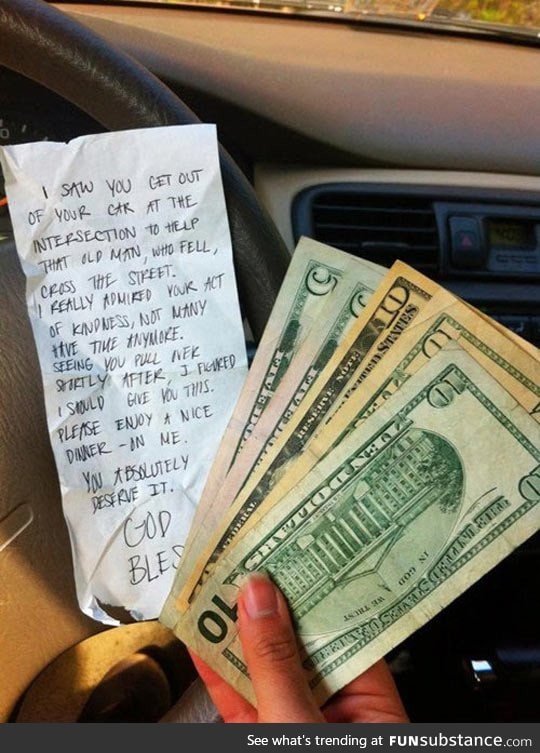 I SAW YOU GET OUT
OF YOUR CAR AT THE
INTERSECTION TO HELP
THAT OLD MAN, WHO FELL,
CROSS THE STREET.
I REALLY ADMIRED YOUR ACT
OF KINDNESS, NOT MANY
HAVE TIME ANYMORE.
SEEING YOU PULL OVER
SHORTLY AFTER, I FIGURED
I SHOULD GIVE YOU THIS.
PLEASE ENJOY A NICE
DINNER - ON ME.
YOU ABSOLUTELY
DESERVE IT.
GOD
BLES
10
10
IN GOD WE TRUST
THE UNITED STATES OF AMERICA
See what's trending at FUNsubstance.com